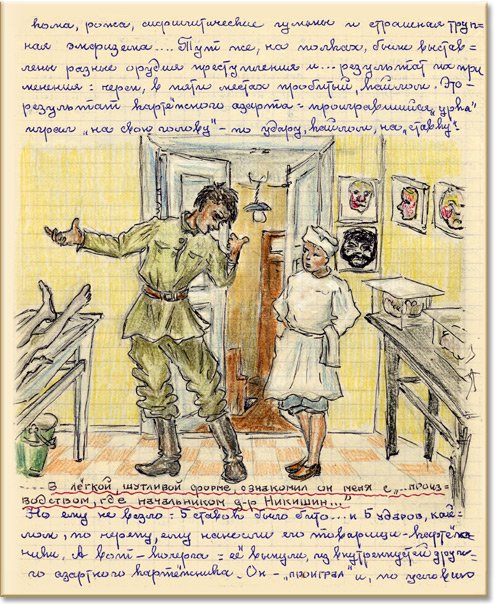 кома, рожа, сифилитические гуммы и страшная труп=
ная эмфизема.... Тут же, на полках, были выстав=
лены разные орудия преступления и... результат их при
менения: череп, в пяти местах пробитый, кайлом. Это–
результат картёжного азарта: проигравшийся „урка"
играл „на свою голову" – по удару, кайлом, на „ставку"!
....В лёгкой, шутливой форме ознакомил он меня с „..произ=
водством, где начальником д-р Никишин..."
Но ему не везло: 5 ставок было бито... и 5 ударов, кай=
лом, по черепу, ему нанесли его товарищи-картёж=
ники. А вот – кочерга: её вынули, из внутренностей друго=
го азартного картёжника. Он – „проиграл" и, по условию